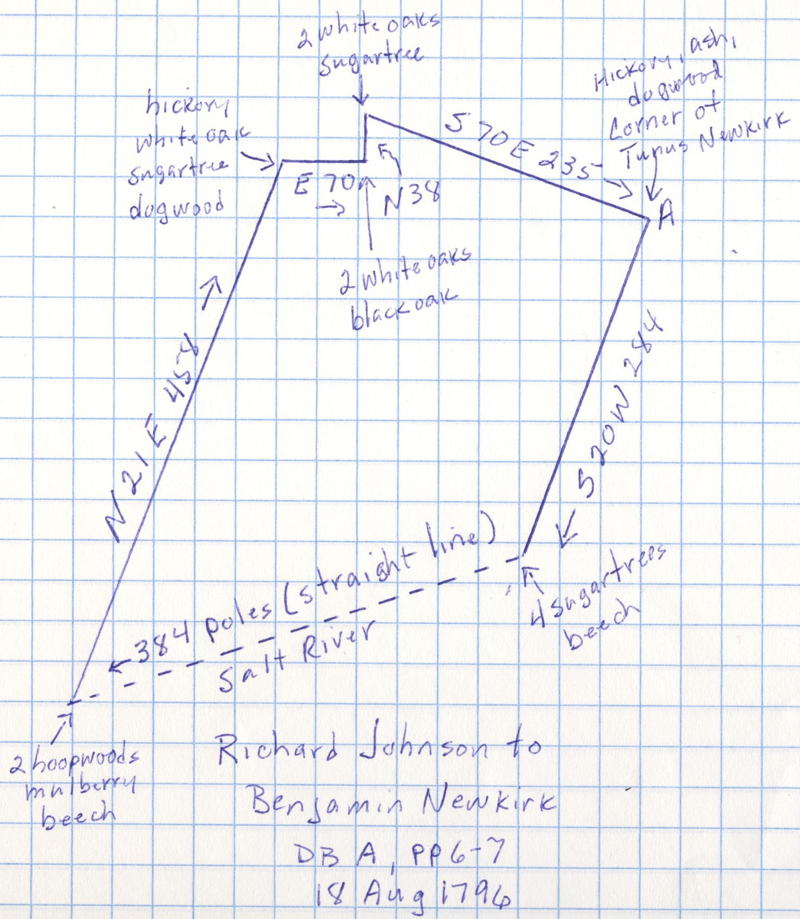 2 white oaks
sugartree
Hickory, ash,
dogwood
Corner of
Tunus Newkirk
hickory
white oak
sugartree
dogwood
S 70 E 235
E 70
N38
A
2 white oaks
black oak
N 21 E 458
S 20 W 284
384 poles (straight line)
Salt River
4 sugartrees
beech
2 hoopwoods
mulberry
beech
Richard Johnson to
Benjamin Newkirk
DB A, pp 6-7
18 Aug 1796